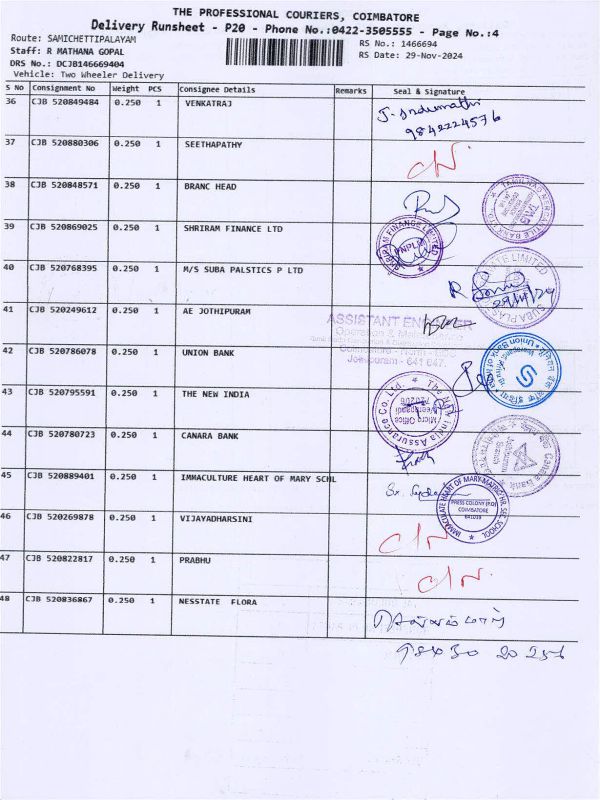 THE PROFESSIONAL COURIERS, COIMBATORE
Delivery Runsheet - P20 - Phone No.:0422-3505555 - Page No.:4
Route: SAMICHETTIPALAYAM
RS No.: 1466694
Staff: R MATHANA GOPAL
RS Date: 29-Nov-2024
DRS No.: DCJB146669404
Vehicle: Two Wheeler Delivery
S No Consignment No Weight PCS Consignee Details Remarks Seal & Signature
36 CJB 520849484 0.250 1 VENKATRAJ
9842224576
37 CJB 520880306 0.250 1 SEETHAPATHY
38 CJB 520848571 0.250 1 BRANC HEAD
39 CJB 520869025 0.250 1 SHRIRAM FINANCE LTD
SHRIRAM FINANCE LIMITED
40 CJB 520768395 0.250 1 M/S SUBA PALSTICS P LTD
41 CJB 520249612 0.250 1 AE JOTHIPURAM
ASSISTANT ENGINEER
42 CJB 520786078 0.250 1 UNION BANK
43 CJB 520795591 0.250 1 THE NEW INDIA
The New India Assurance Co. Ltd.
Micro Office
44 CJB 520780723 0.250 1 CANARA BANK
Canara Bank
45 CJB 520889401 0.250 1 IMMACULTURE HEART OF MARY SCHL
IMMACULATE HEART OF MARY MATRIC HR. SEC. SCHOOL
PRESS COLONY (P.O)
COIMBATORE
641019
46 CJB 520269878 0.250 1 VIJAYADHARSINI
47 CJB 520822817 0.250 1 PRABHU
48 CJB 520836867 0.250 1 NESSTATE FLORA